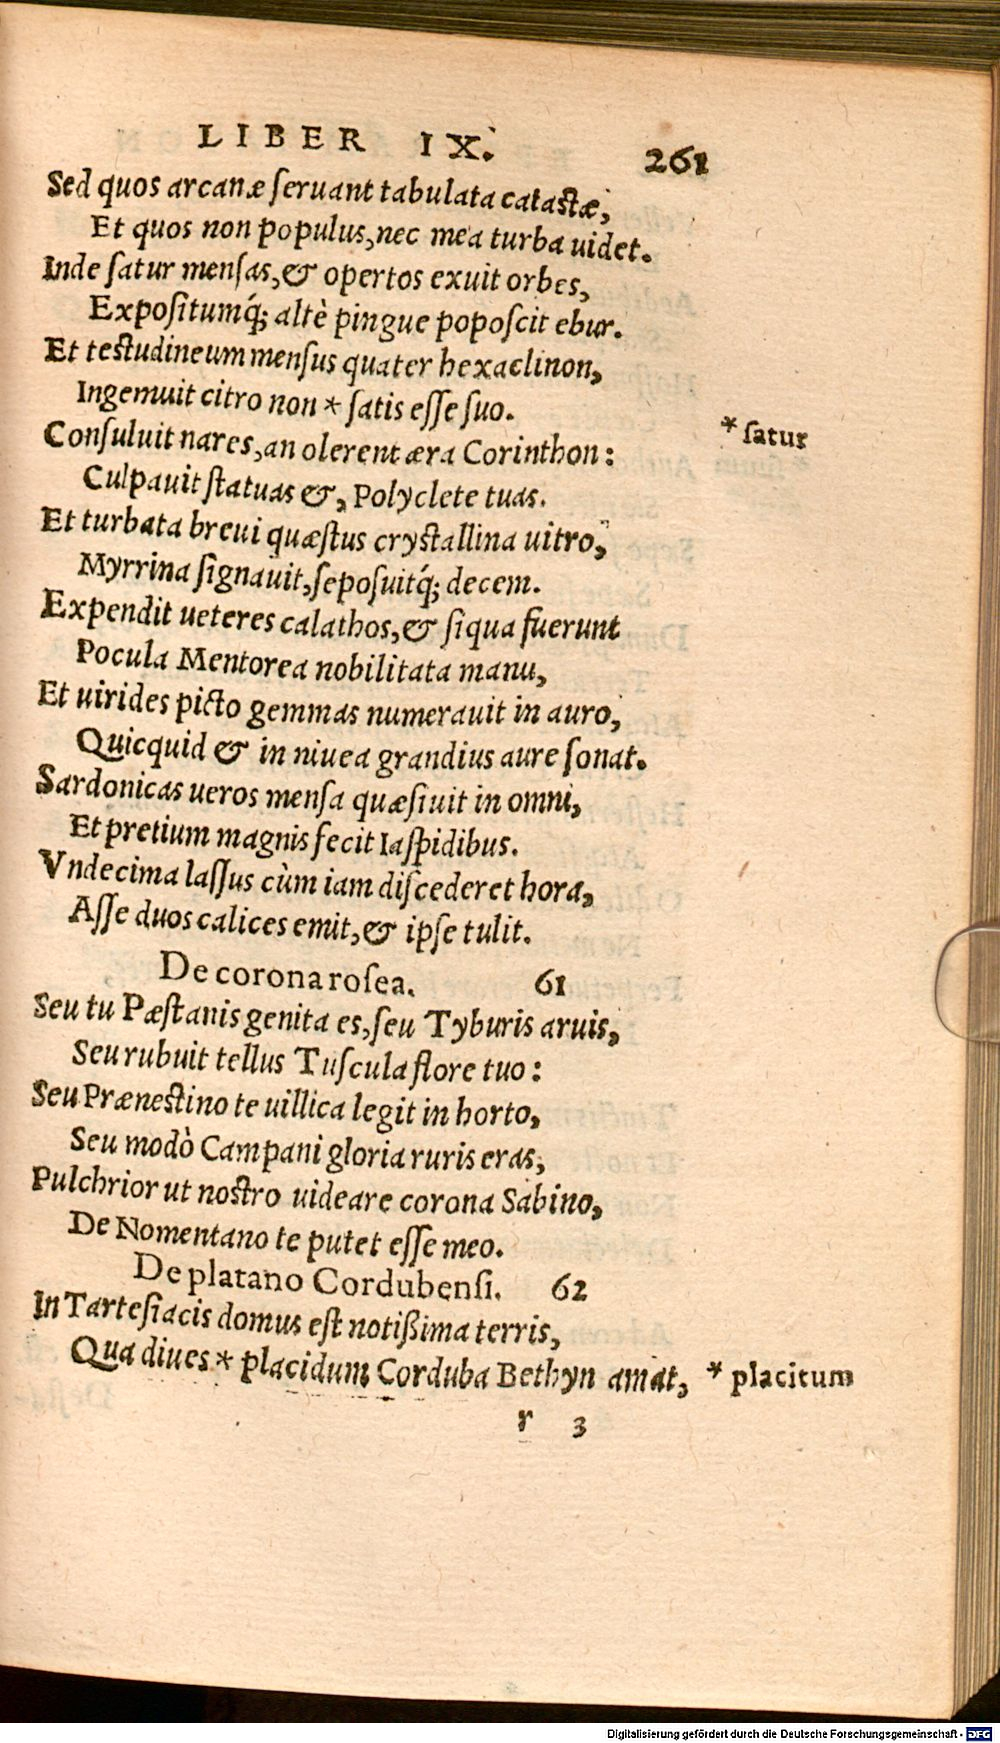 LIBER IX. 261
Sed quos arcanæ ſeruant tabulata cataſtæ,
Et quos non populus, nec mea turba uidet.
Inde ſatur menſas, & opertos exuit orbes,
Expoſitumq́; altè pingue popoſcit ebur.
Et teſtudineum menſus quater hexaclinon,
Ingemuit citro non * ſatis eſſe ſuo.
* ſatur
Conſuluit nares, an olerent æra Corinthon:
Culpauit ſtatuas &, Polyclete tuas.
Et turbata breui quæſtus cryſtallina uitro,
Myrrina ſignauit, ſepoſuitq́; decem.
Expendit ueteres calathos, & ſiqua fuerunt
Pocula Mentorea nobilitata manu,
Et uirides picto gemmas numerauit in auro,
Quicquid & in niuea grandius aure ſonat.
Sardonicas ueros menſa quæſiuit in omni,
Et pretium magnis fecit Iaſpidibus.
Vndecima laſſus cùm iam diſcederet hora,
Aſſe duos calices emit, & ipſe tulit.
De corona roſea. 61
Seu tu Pæſtanis genita es, ſeu Tyburis aruis,
Seu rubuit tellus Tuſcula flore tuo:
Seu Præneſtino te uillica legit in horto,
Seu modò Campani gloria ruris eras,
Pulchrior ut noſtro uideare corona Sabino,
De Nomentano te putet eſſe meo.
De platano Cordubenſi. 62
In Tarteſiacis domus eſt notißima terris,
Qua diues * placidum Corduba Bethyn amat,
* placitum
r 3
Digitalisierung gefördert durch die Deutsche Forschungsgemeinschaft - DFG